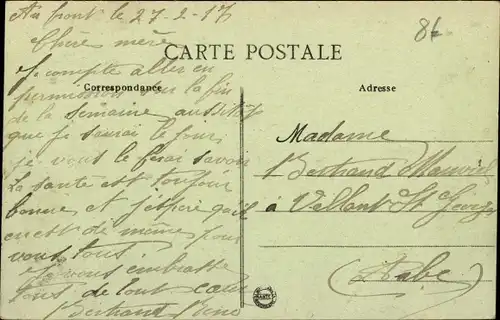 Au front le 27-2-17
86
Chère mère
CARTE POSTALE
Je compte aller en
Correspondance
Adresse
permission sur la fin
de la semaine aussitôt
que je saurai le jour
je vous le ferai savoir
La santé est toujour
bonne et j'espère qu'il
en est de même pour
vous tous
Je vous embrasse
tous de tout cœur
Bertrand René
Madame
Bertrand
à Villant St Georges
(Aube)
CARTE